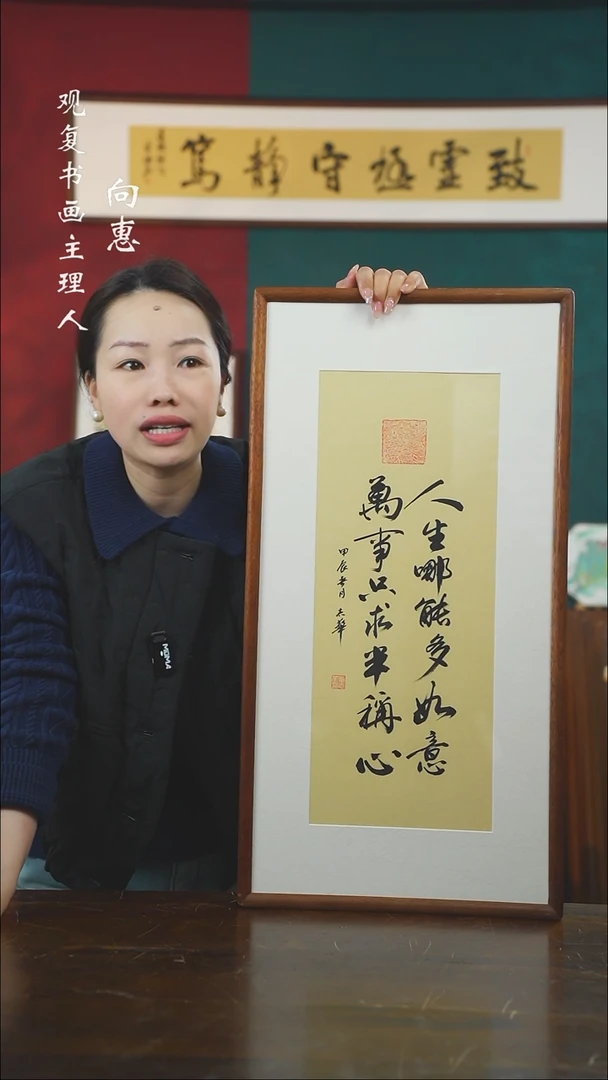 观复书画主理人
向惠
致虚极守静笃
人生哪能多如意
萬事只求半稱心
甲辰
MGMA